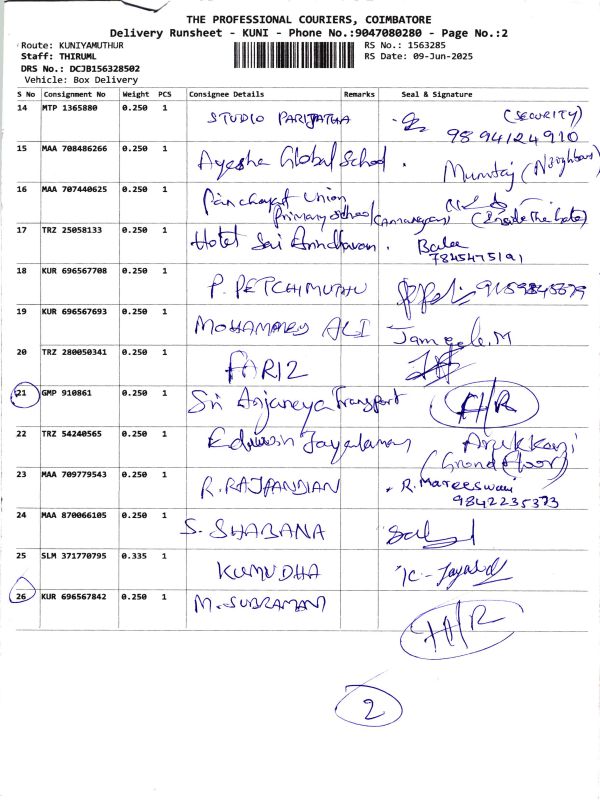 THE PROFESSIONAL COURIERS, COIMBATORE
Delivery Runsheet - KUNI - Phone No.:9047080280 - Page No.:2
Route: KUNIYAMUTHUR RS No.: 1563285
Staff: THIRUML RS Date: 09-Jun-2025
DRS No.: DCJB156328502
Vehicle: Box Delivery
S No Consignment No Weight PCS Consignee Details Remarks Seal & Signature
14 MTP 1365880 0.250 1 STUDIO PARIJATHA (SECURITY)
9894124910
15 MAA 708486266 0.250 1 Ayesha Global School Mumtaj (Neighbour)
16 MAA 707440625 0.250 1 Panchayat Union
Primary School (Inside the Gate)
17 TRZ 25058133 0.250 1 Hotel Sai Balaa
7845475191
18 KUR 696567708 0.250 1 P. PETCHIMUTHU 9159845679
19 KUR 696567693 0.250 1 MOHAMMED ALI Jameela.M
20 TRZ 280050341 0.250 1 FARIZ
21 GMP 910861 0.250 1 Sri Anjaneya Transport H/R
22 TRZ 54240565 0.250 1 Edwin Jayaraman
(Grond floor)
23 MAA 709779543 0.250 1 R. RAJPANDIAN R. Mareeswari
9842235373
24 MAA 870066105 0.250 1 S. SHABANA
25 SLM 371770795 0.335 1 KUMUDHA
26 KUR 696567842 0.250 1 M. SUBRAMANI H/R
2